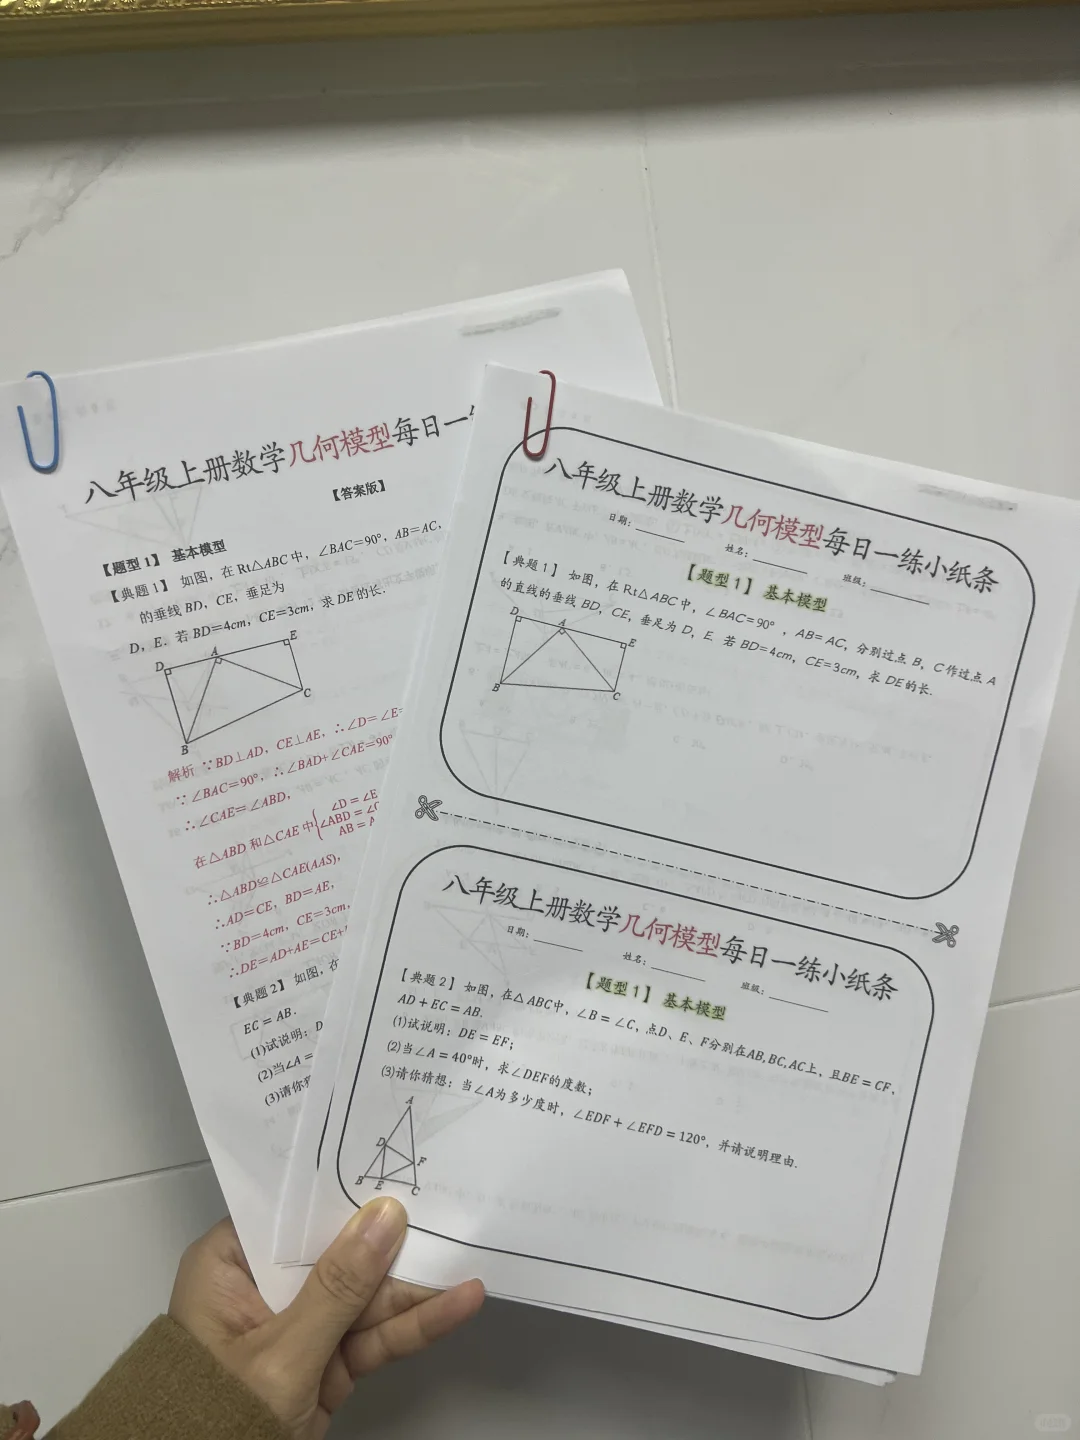 八年级上册数学几何模型每日一
【答案版】
【题型1】 基本模型
【典题1】 如图，在Rt△ABC中，∠BAC=90°，AB=AC，
的垂线BD，CE，垂足为
D，E．若BD=4cm，CE=3cm，求DE的长．
D
A
E
B
C
解析 ∵BD⊥AD，CE⊥AE，∴∠D=∠E=
∵∠BAC=90°，∴∠BAD+∠CAE=90°
∴∠CAE=∠ABD，
∠D=∠E
在△ABD和△CAE中{∠ABD=∠
AB=A
∴△ABD≌△CAE(AAS)，
∴AD=CE，BD=AE，
∵BD=4cm，CE=3cm，
∴DE=AD+AE=CE+
【典题2】 如图，在
EC=AB．
(1)试说明：D
(2)当∠A=
(3)请你猜
八年级上册数学几何模型每日一练小纸条
日期：______ 姓名：______ 班级：______
【题型1】 基本模型
【典题1】 如图，在Rt△ABC中，∠BAC=90°，AB=AC，分别过点B，C作过点A
的直线的垂线BD，CE，垂足为D，E．若BD=4cm，CE=3cm，求DE的长．
D
A
E
B
C
八年级上册数学几何模型每日一练小纸条
日期：______ 姓名：______ 班级：______
【题型1】 基本模型
【典题2】 如图，在△ABC中，∠B=∠C，点D、E、F分别在AB,BC,AC上，且BE=CF，
AD+EC=AB．
(1)试说明：DE=EF；
(2)当∠A=40°时，求∠DEF的度数；
(3)请你猜想：当∠A为多少度时，∠EDF+∠EFD=120°，并请说明理由．
A
D
F
B
E
C